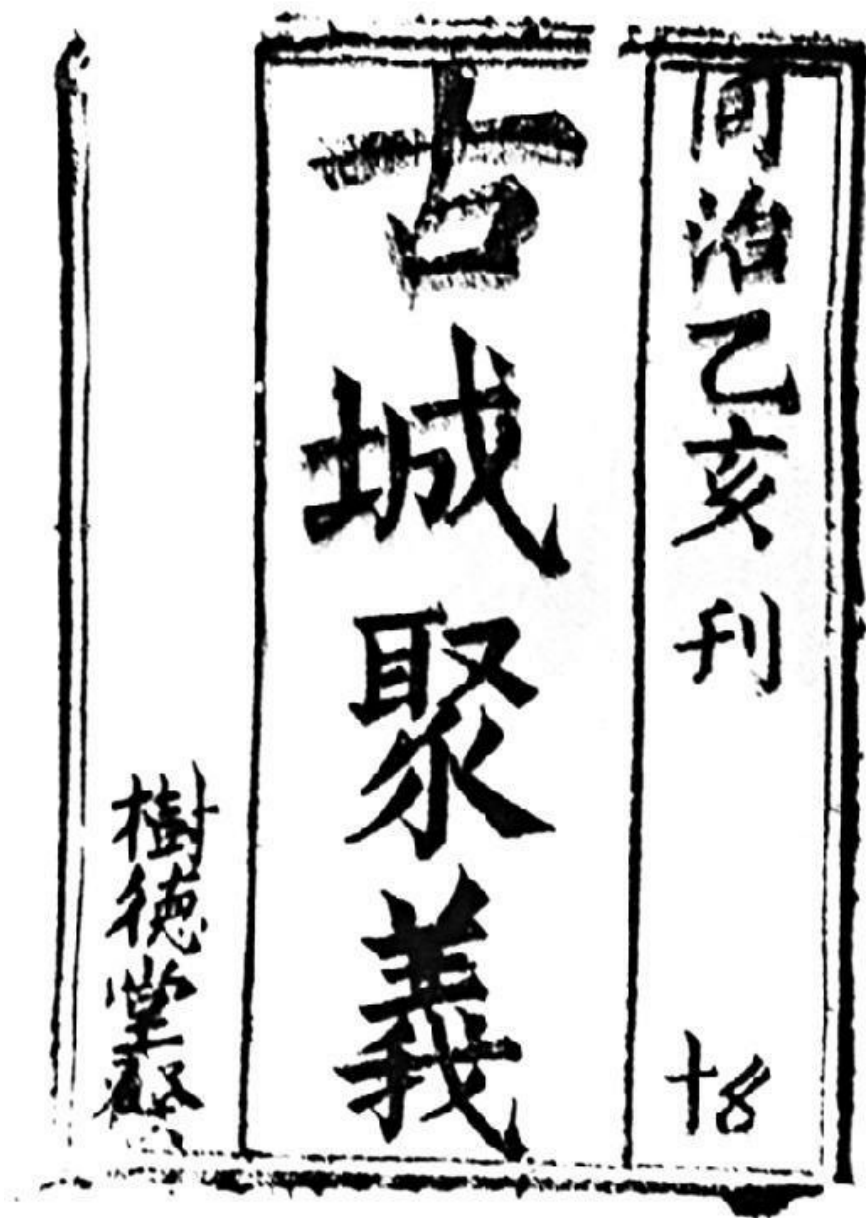 同治乙亥刊
十8
古城聚義
樹德堂